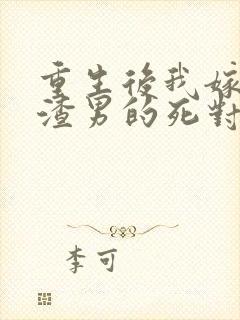 重生後我嫁
渣男的死對
李可